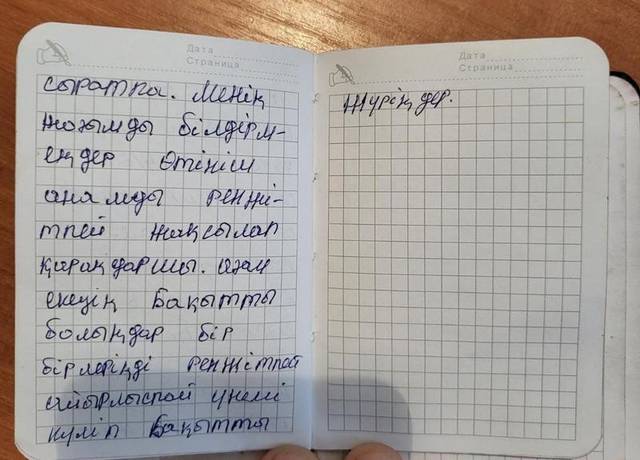 Дата
Страница
сыратпа. Менің
жоғымды білдірм-
еңдер Өтініш
анамды ренжі-
тпей жақсылап
қараңдаршы. Әжем
екеуің Бақытты
болыңдар бір
бірлеріңді ренжітпей
айырлыспай үнемі
күліп Бақытты
Дата
Страница
жүріңдер.